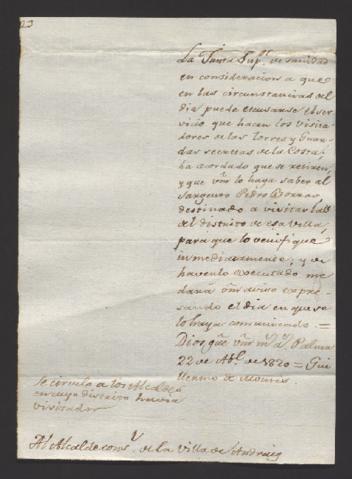 23
La Junta Sup.r de sanidad
en consideracion a que
en las circunstancias del
dia puede escusarse el ser
vicio que hacen los visita
dores de las Torres y Guar
das secretas de la Costa,
ha acordado que se retiren,
y que Vm lo haga saber al
Sargento Pedro
destinado a visitar las
del distrito de esa villa,
para que lo verifique
inmediatamente, y de
haverlo executado me
dará Vm aviso expre
sando el dia en que se
lo haya comunicado. =
Dios gue. Vm m.s a.s Palma
22 de Ab.l de 1820 = Gui
llermo de Montis
Se circula a los Alcaldes
en cuyo distrito havia
visitador
Al Alcalde cons.l de la Villa de Andraig